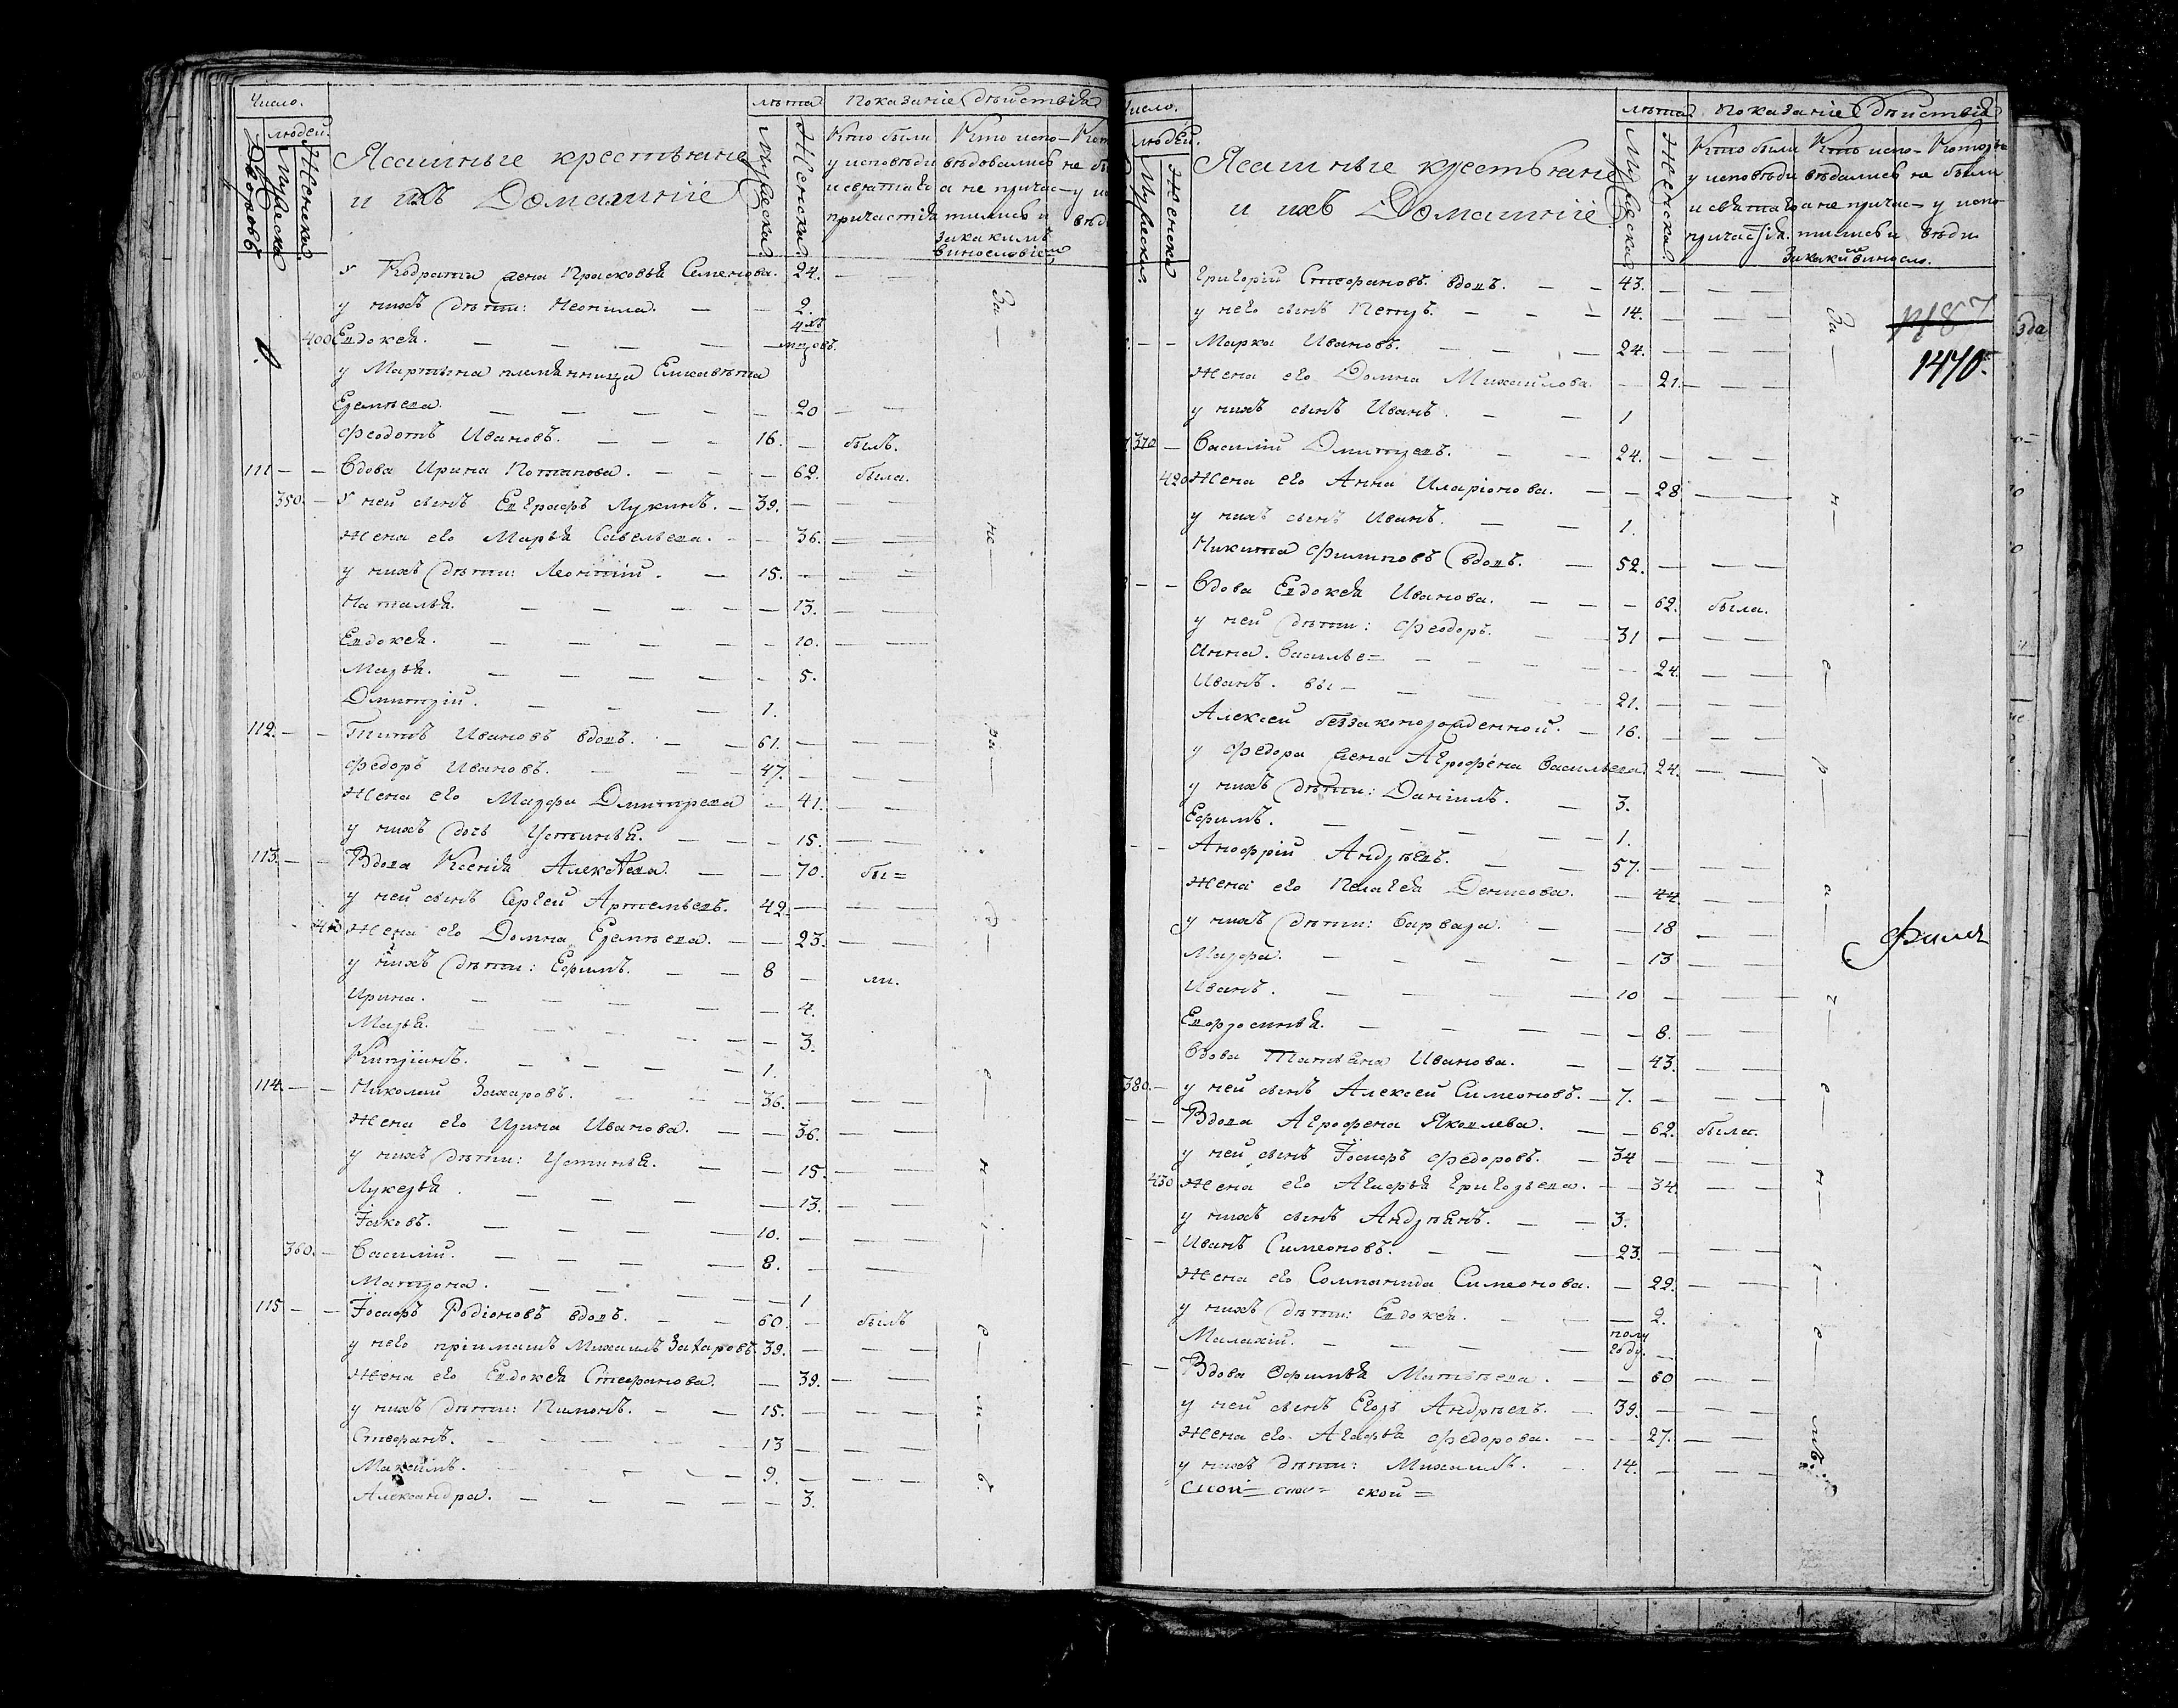 Число.
людей.
Дворовъ
Мужеска
Женска
Ясашные крестьяне
и ихъ Домашніе
лѣта
Мужеска
Женска
Показаніе дѣйствія
Кто были
у исповѣди
и святаго
причастія
Кто испо-
вѣдовались
а не причас-
тились и
за какимъ
винословіем
У Кодрата жена Прасковья Семенова. 24.
у нихъ дѣти: Неонила. 2.
400 Евдокея. 4 хъ мцовъ.
у Мартына племянница Елисавета
Еремѣева. 20
Феодотъ Ивановъ. 16. былъ.
111 Вдова Ирина Потапова. 62. была.
350. У ней сынъ Евграфъ Лукинъ. 39.
Жена его Марья Савельева. 36.
у нихъ дѣти: Леонтій. 15.
Наталья. 13.
Евдокея. 10.
Марья. 5.
Дмитрій. 1.
112. Титъ Ивановъ вдовъ. 61.
Федоръ Ивановъ. 47.
Жена его Марфа Дмитрева 41.
у нихъ дочь Устинья. 15.
113. Вдова Ксенія Алексѣева. 70. бы=
у ней сынъ Сергей Артемьевъ. 42.
410 Жена его Домна Еремѣева. 23.
у нихъ дѣти: Ефимъ. 8 ли.
Ирина. 4.
Марья. 3.
Кипріанъ. 1.
114. Николай Захаровъ. 36.
Жена его Ирина Иванова. 36.
у нихъ дѣти: Устинья. 15.
Лукерья. 13.
Іаковъ. 10.
360. Василій. 8.
Матрона. 1
115 Іосифъ Родіоновъ вдовъ. 60. былъ
у него пріимашъ Михаилъ Захаровъ. 39.
Жена его Евдокея Стефанова. 39.
у нихъ дѣти: Пимонъ. 15.
Стефанъ. 13
Максимъ. 9.
Александра. 3.
За
не
ра
д
е
н
і
е
м
ъ.
Число.
людей.
Мужеска
Женска
Ясашные крестьяне
и ихъ Домашніе
лѣта
Мужеска
Женска
Показаніе дѣйствія
Кто были
у исповѣди
и святаго
причастія.
Кто испо-
вѣдались
а не причас-
тились и
за какй виносло.
Которые
не были
у испо-
вѣди
Григорій Стефановъ вдовъ. 43.
у него сынъ Петръ. 14.
1487
1470.
Марка Ивановъ. 24.
Жена его Домна Михаилова. 21.
у нихъ сынъ Иванъ. 1
370 Василій Дмитревъ. 24.
420 Жена его Анна Иларіонова. 28
у нихъ сынъ Иванъ. 1.
Никита Филиповъ вдовъ. 52.
Вдова Евдокея Иванова. 62. была.
у ней дѣти: Феодоръ. 31
Анна. Василье= 24.
Иванъ. вы- 21.
Алексей беззаконорожденной. 16.
у Федора жена Агрофена Васильева. 24.
у нихъ дѣти: Даніилъ. 3.
Ефимъ. 1.
Анофрій Андрѣевъ. 57.
Жена его Пелагея Денисова. 44
у нихъ дѣти: Варвара. 18
Марфа. 13
Иванъ. 10
Евфросинья. 8.
Вдова Татьяна Иванова. 43.
380. у ней сынъ Алексей Симеоновъ. 7.
Вдова Агрофена Яковлева. 62. была.
у ней сынъ Іосифъ Федоровъ. 34
430 Жена его Агафья Григорьева. 34.
у нихъ сынъ Андрѣянъ. 3.
Иванъ Симеоновъ. 23.
Жена его Соломанида Симеонова. 22.
у нихъ дѣти: Евдокея. 2.
Малахій. полу году.
Вдова Ефимья Матвѣева. 60
у ней сынъ Егоръ Андрѣевъ. 39.
Жена его Агафья Федорова. 27.
у нихъ дѣти: Михаилъ. 14.
За
н
е
р
а
д
е
н
і
е
мъ.